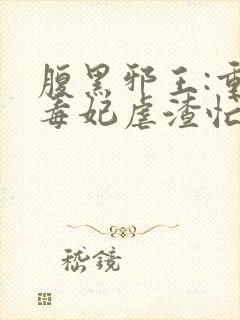 腹黑邪王:重
毒妃虐渣忙
嵇鏡